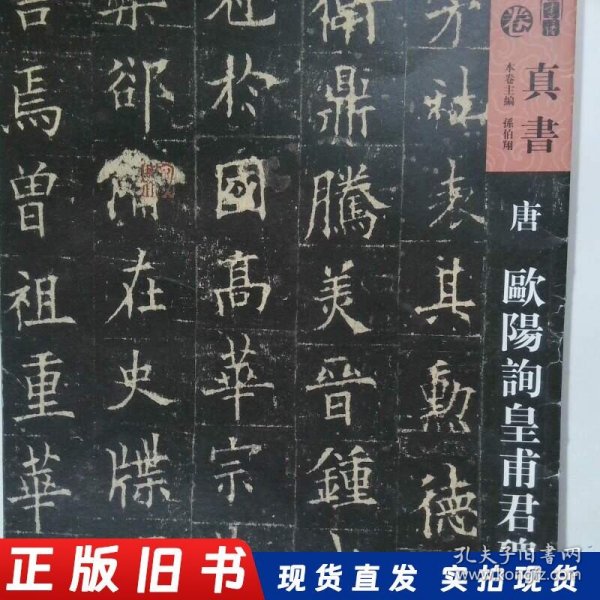 卷
真書
本卷主編 孫伯翔
唐 歐陽詢皇甫君碑
茅社表其勲德
衛鼎騰美晉鍾
冠於國高華宗
郤備在史牒
言焉曾祖重華
正版旧书 现货直发 实拍现货
孔夫子旧书网
www.kongfz.com